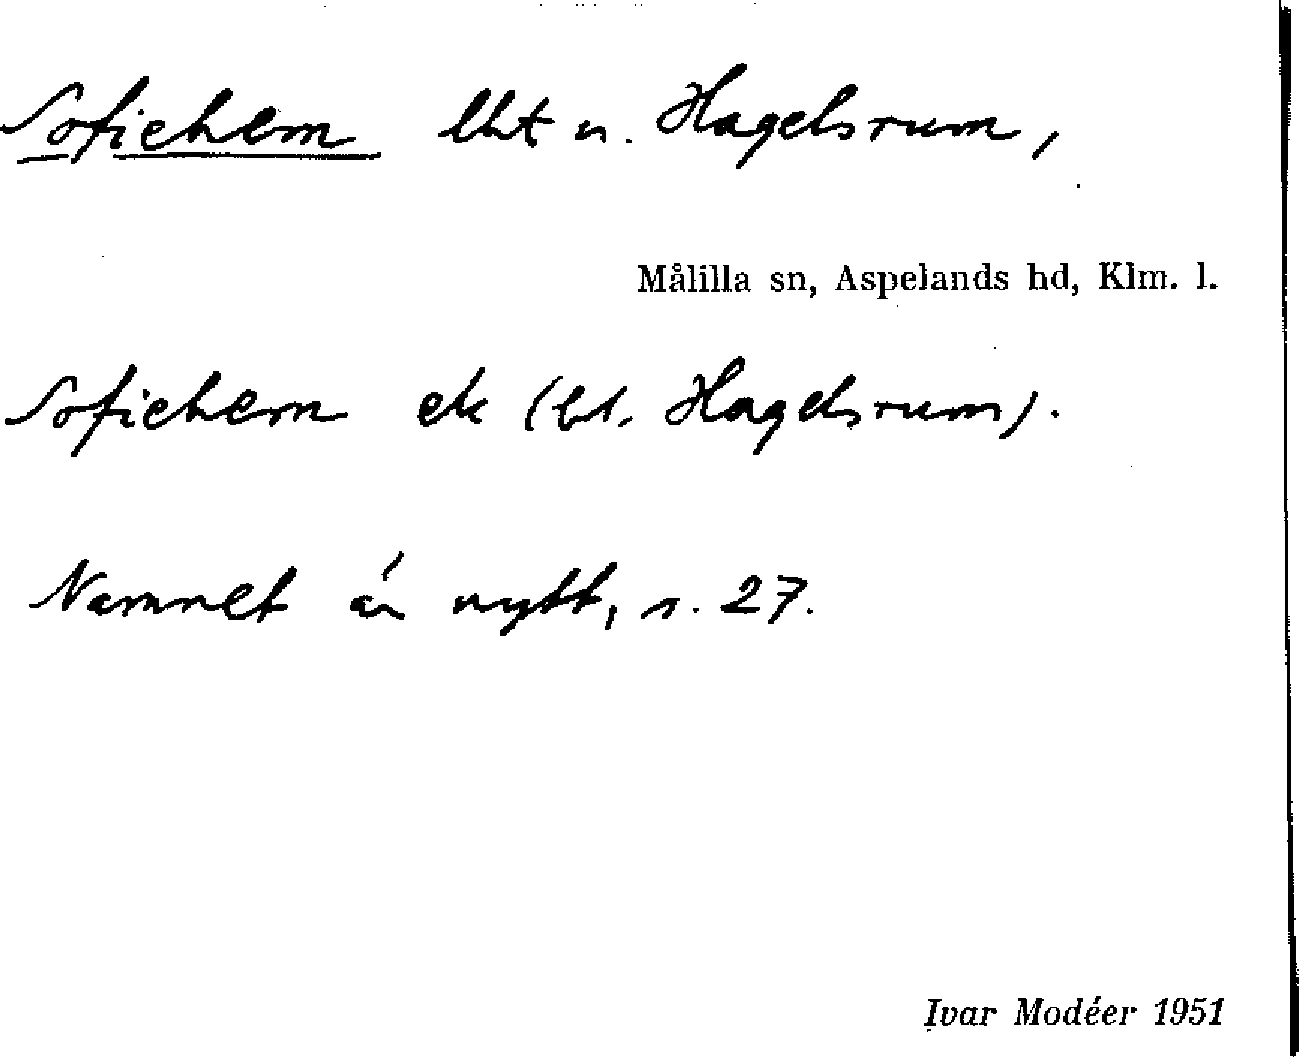 Sofiehem lht u. Hagelsrum,
Målilla sn, Aspelands hd, Klm. l.
Sofiehem ek (bl. Hagelsrum).
Namnet är nytt, s. 27.
Ivar Modéer 1951